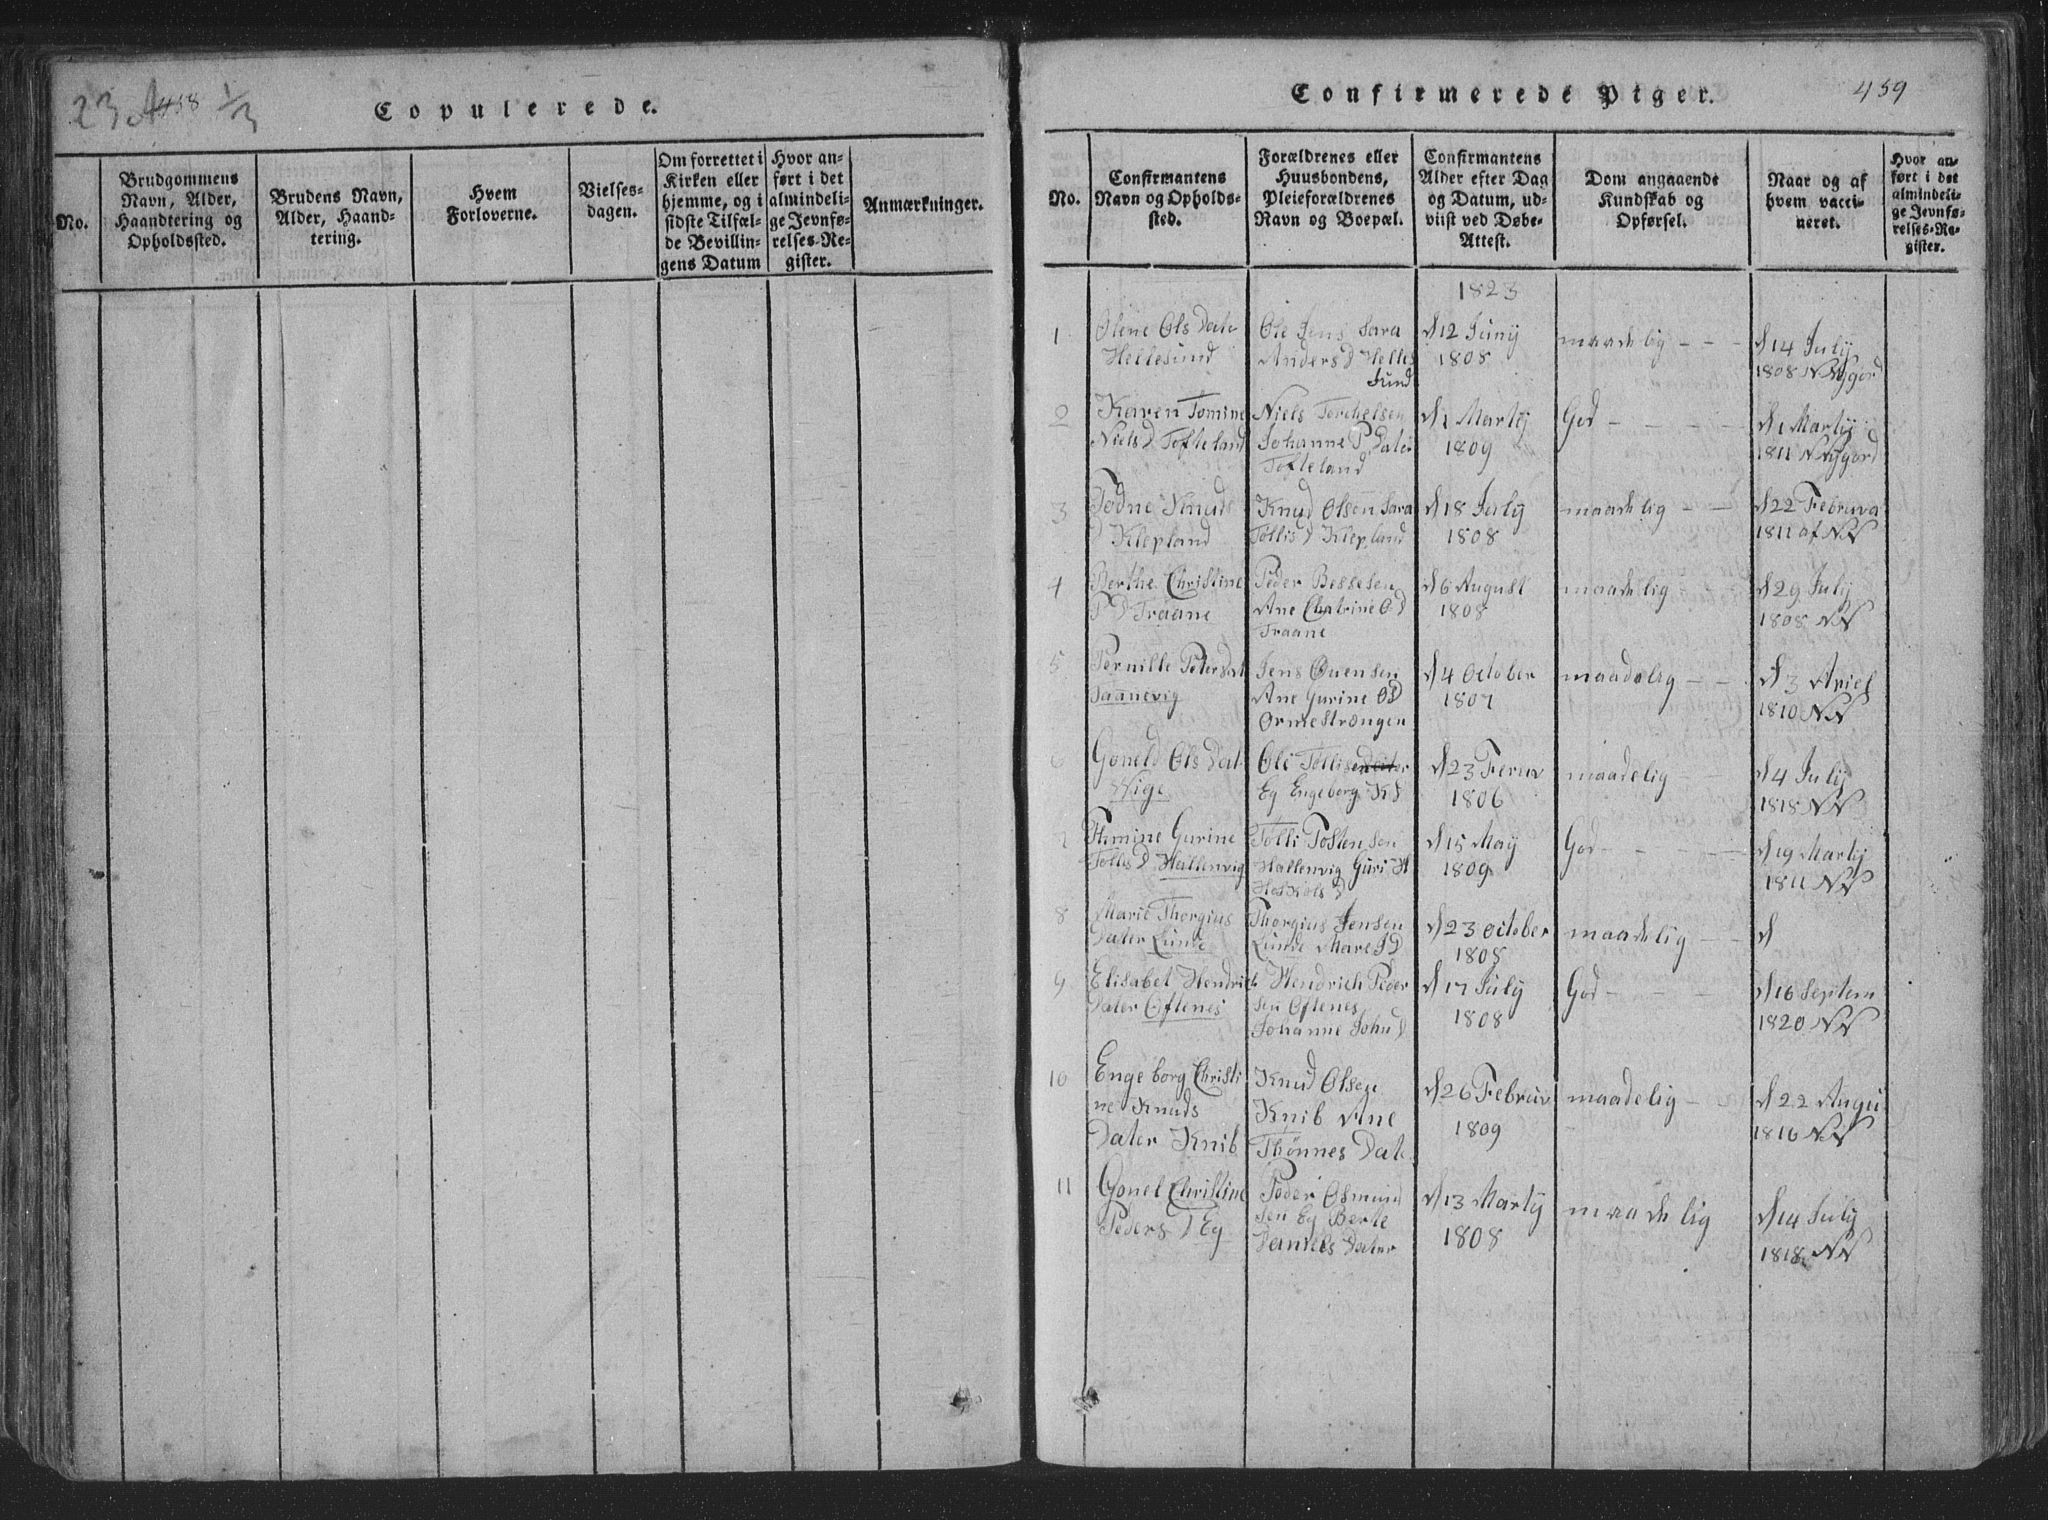 23 A 458 1/3
Copulerede.
No.
Brudgommens Navn, Alder, Haandtering og Opholdssted.
Brudens Navn, Alder, Haandtering.
Hvem Forloverne.
Vielsesdagen.
Om forrettet i Kirken eller hjemme, og i sidste Tilfælde Bevillingens Datum
Hvor anført i det almindelige Jevnførelses-Register.
Anmærkninger.
Confirmerede Piger.
459
No.
Confirmantens Navn og Opholdssted.
Forældrenes eller Huusbondens, Pleieforældrenes Navn og Boepæl.
Confirmantens Alder efter Dag og Datum, udviist ved Døbe-Attest.
Dom angaaende Kundskab og Opførsel.
Naar og af hvem vaccineret.
Hvor anført i det almindelige Jevnførelses-Register.
1823
1 Olene Ols Date Ole Jens Sara d 12 Juny maadelig - - - d 14 July
Hellesund Anders D Helles 1808 1808 N Nygord
Sund
2 Karen Tomine Niels Torchelsen d 1 Martij God - - - - d 1 Martij
Niels D Tofteland Johanne P Dater 1809 1811 N Nygord
Tofteland
3 Todne Knuds Knud Olsen Sara d 18 July maadelig - - d 22 Februa
D Klepland Tollis D Klepland 1808 1811 af NN
4 Berthe Christine Peder Bessesen d 6 August maadelig - d 29 July
P D Traane Ane Chatrine O D 1808 1808 NN
Traane
5 Pernille Petersdat Jens Ouensen d 4 October maadelig - - d 3 April
Saanevig Ane Gurine O D 1807 1810 NN
Ørnestrængen
6 Goneld Ols Dat Ole Tollisen d 23 Feruv maadelig - - d 4 July
Vige Eg Engeborg K D 1806 1818 NN
7 Tomine Gurine Tolli Tostensen d 15 May God - - - - d 19 Martij
Tollis D Hallenvig Hallenvig Guri H 1809 1811 NN
8 Marie Thorgius Thorgius Jensen d 23 October maadelig - - d
Dater Lunde Lunde Mare J D 1808
9 Elisabet Hendrich Hendrich Peder d 17 July God - - - d 16 Septem
Dater Oftenes sen Oftenes 1808 1820 NN
Johanne John D
10 Enge borg Christi Knud Olsen d 26 Februv maadelig - d 22 Augu
ne Knuds Knib Ane 1809 1816 NN
Dater Knib Thønnes Date
11 Gonel Christine Peder Osmund d 13 Martij maadelig d 14 July
Peders D Eg sen Eg Berte 1808 1818 NN
Daniels Dater